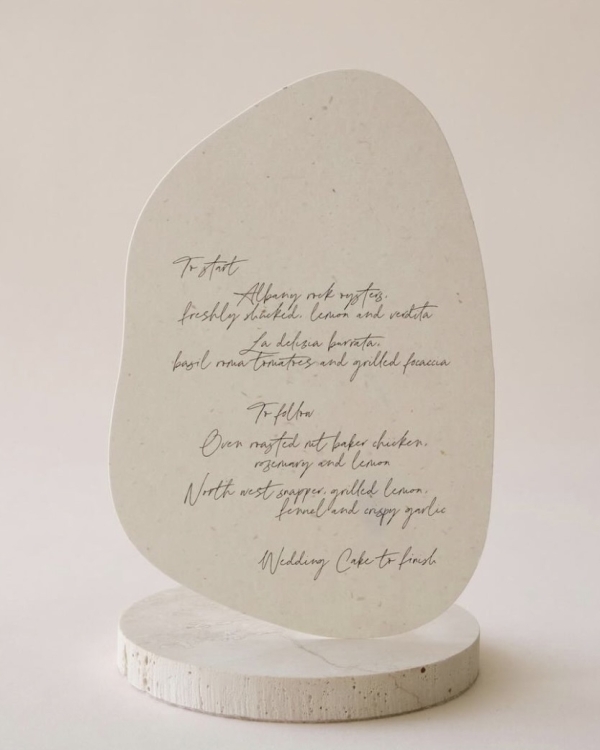 To start
Albany rock oysters,
freshly shucked, lemon and verdita
La delizia burrata,
basil roma tomatoes and grilled focaccia
To follow
Oven roasted mt baker chicken,
rosemary and lemon
North west snapper, grilled lemon,
fennel and crispy garlic
Wedding Cake to finish